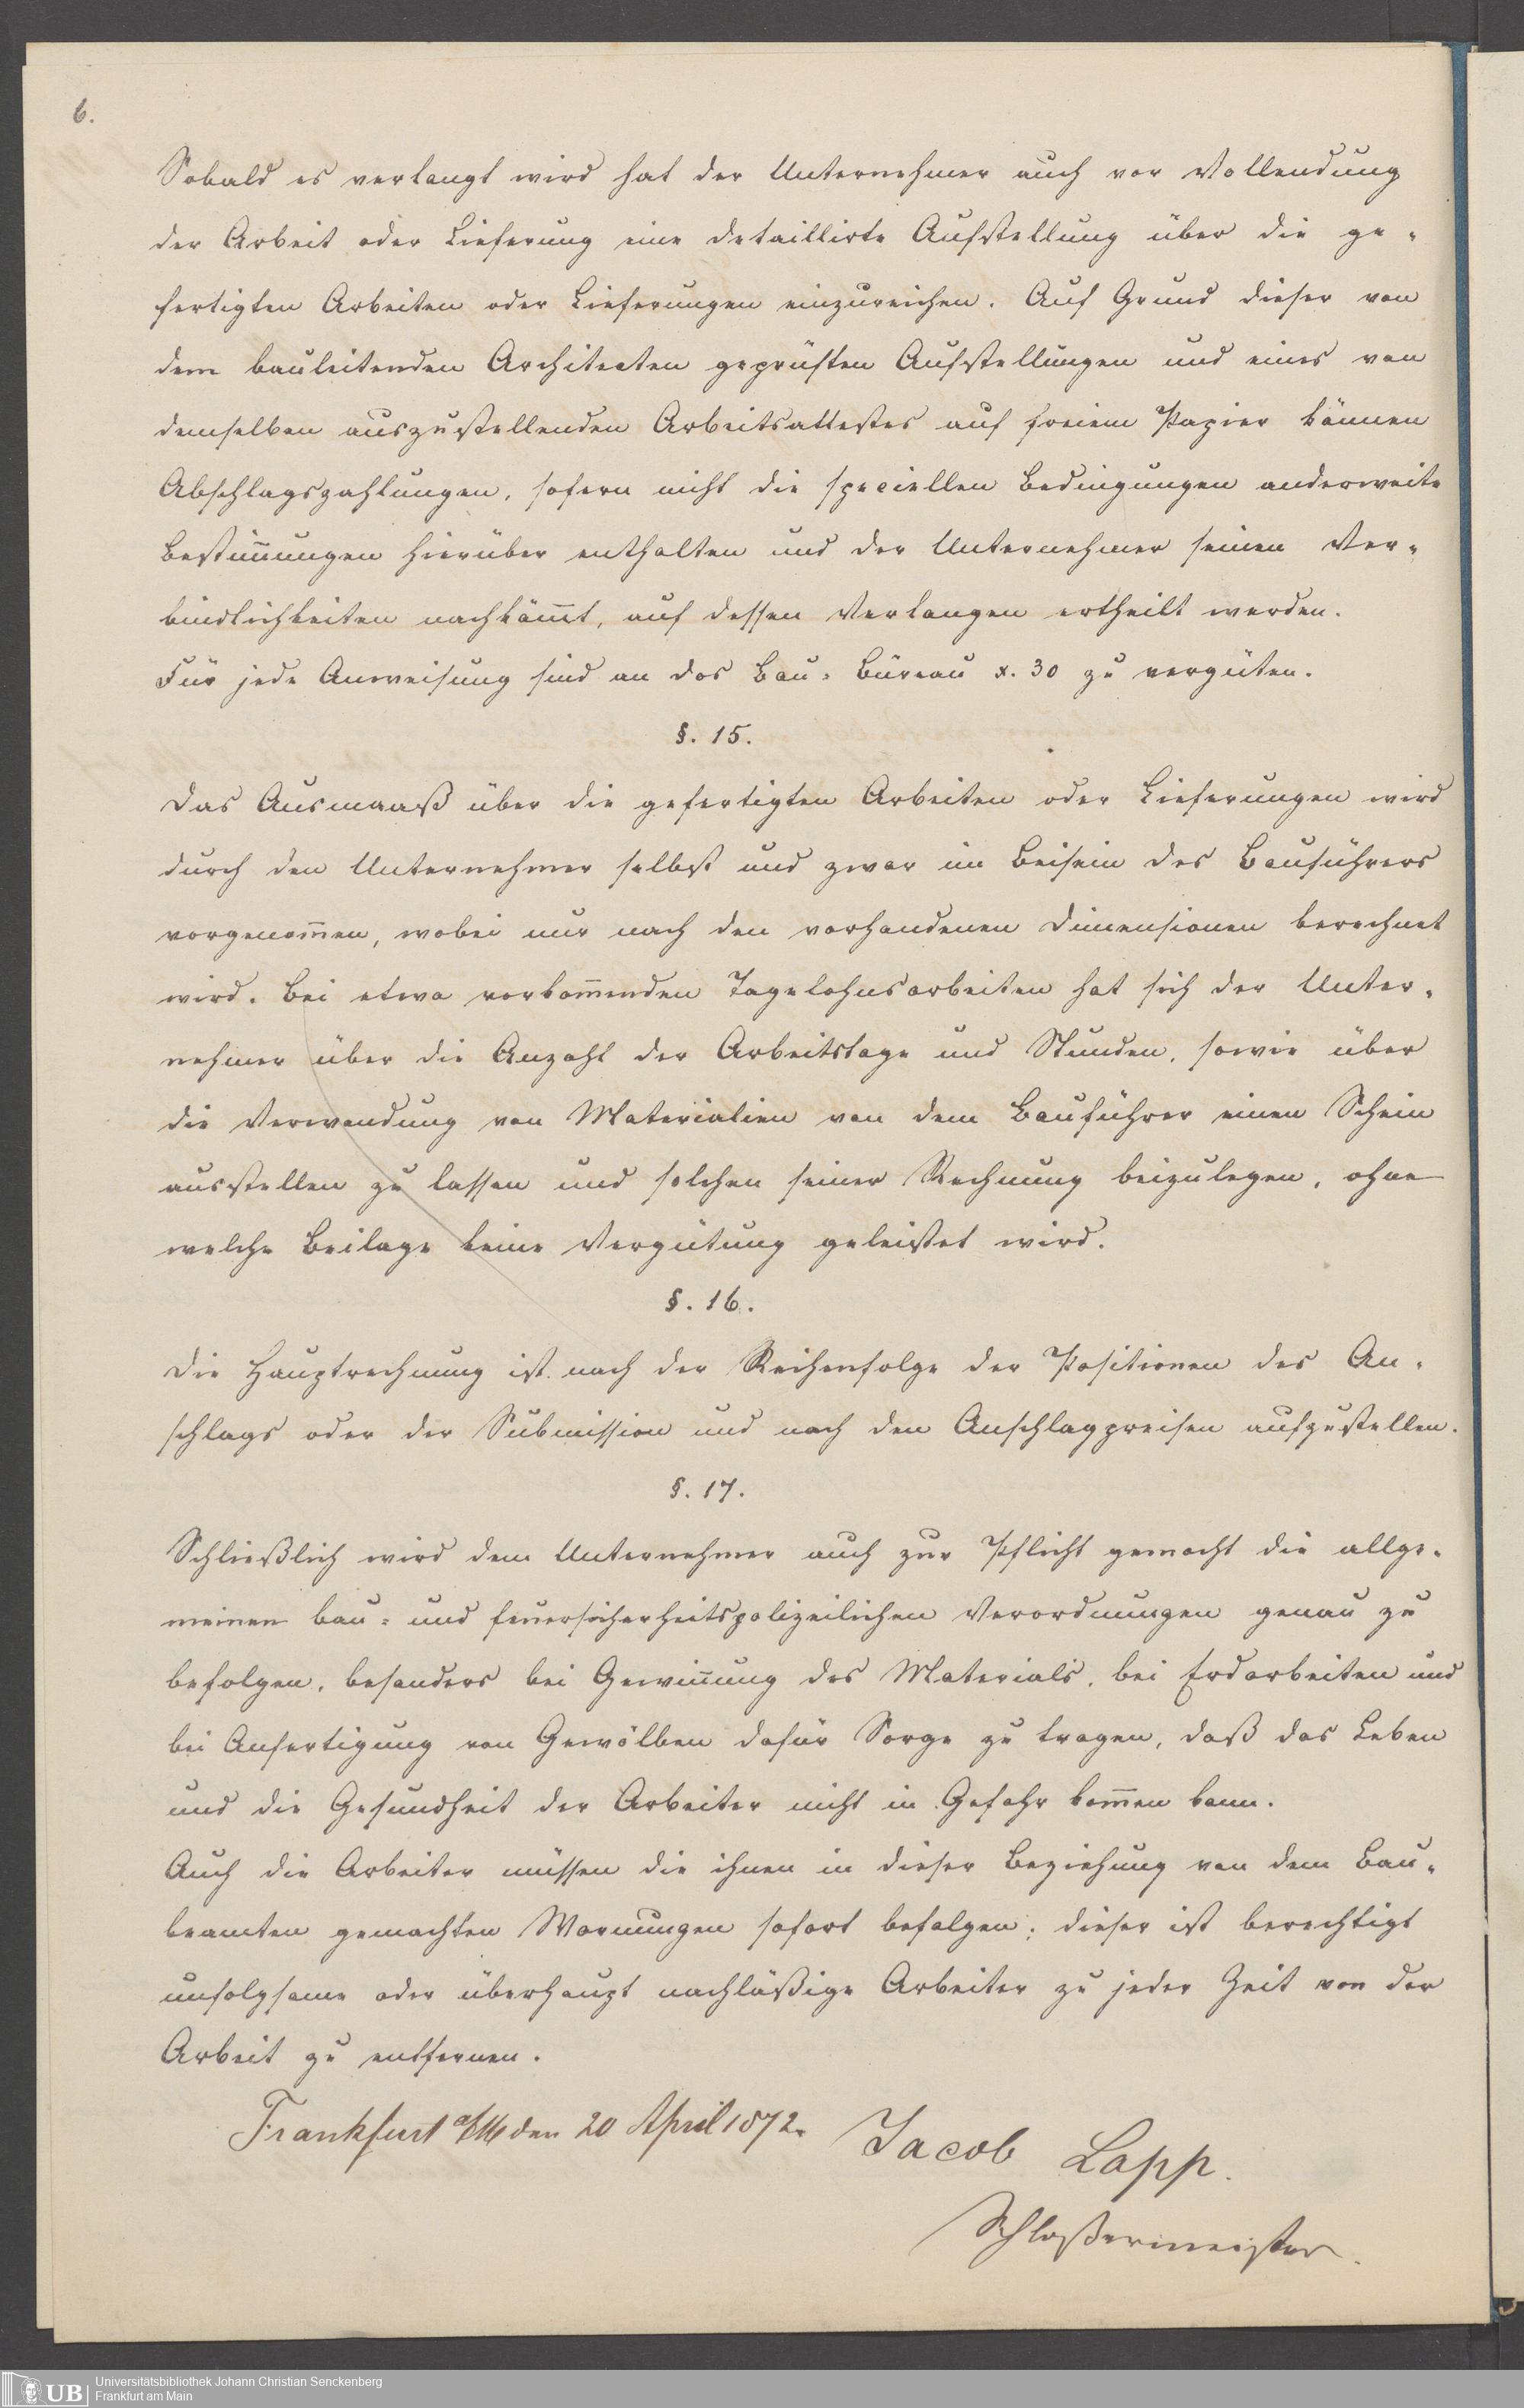 6.
Sobald es verlangt wird hat der Unternehmer auch vor Vollendung
der Arbeit oder Lieferung eine detaillirte Aufstellung über die ge-
fertigten Arbeiten oder Lieferungen einzureichen. Auf Grund dieser von
dem bauleitenden Architecten geprüften Aufstellungen und eines von
demselben auszustellenden Arbeitsattestes auf freiem Papier können
Abschlagszahlungen, sofern nicht die speciellen Bedingungen anderweite
Bestim̅ungen hierüber enthalten und der Unternehmer seinen Ver-
bindlichkeiten nachköm̅t, auf dessen Verlangen ertheilt werden.
Für jede Anweisung sind an das Bau-Büreau x. 30 zu vergüten.
§. 15.
Das Ausmaaß über die gefertigten Arbeiten oder Lieferungen wird
durch den Unternehmer selbst und zwar im Beisein des Bauführers
vorgenom̅en, wobei nur nach den vorhandenen Dimensionen berechnet
wird. Bei etwa vorkom̅enden Tagelohnsarbeiten hat sich der Unter-
nehmer über die Anzahl der Arbeitstage und Stunden, sowie über
die Verwendung von Materialien von dem Bauführer einen Schein
ausstellen zu lassen und solchen seiner Rechnung beizulegen, ohne
welche Beilage keine Vergütung geleistet wird.
§. 16.
Die Hauptrechnung ist nach der Reihenfolge der Positionen des An-
schlags oder der Submission und nach den Anschlagpreisen aufzustellen.
§. 17.
Schließlich wird dem Unternehmer auch zur Pflicht gemacht die allge-
meinen bau- und feuersicherheitspolizeilichen Verordnungen genau zu
befolgen, besonders bei Gewin̅ung des Materials, bei Erdarbeiten und
bei Anfertigung von Gewölben dafür Sorge zu tragen, daß das Leben
und die Gesundheit der Arbeiter nicht in Gefahr kom̅en kann.
Auch die Arbeiter müssen die ihnen in dieser Beziehung von dem Bau-
beamten gemachten Warnungen sofort befolgen; dieser ist berechtigt
unfolgsame oder überhaupt nachläßige Arbeiter zu jeder Zeit von der
Arbeit zu entfernen.
Frankfurt a/M den 20 April 1872. Jacob Lapp.
Schloßermeister.
UB Universitätsbibliothek Johann Christian Senckenberg
Frankfurt am Main